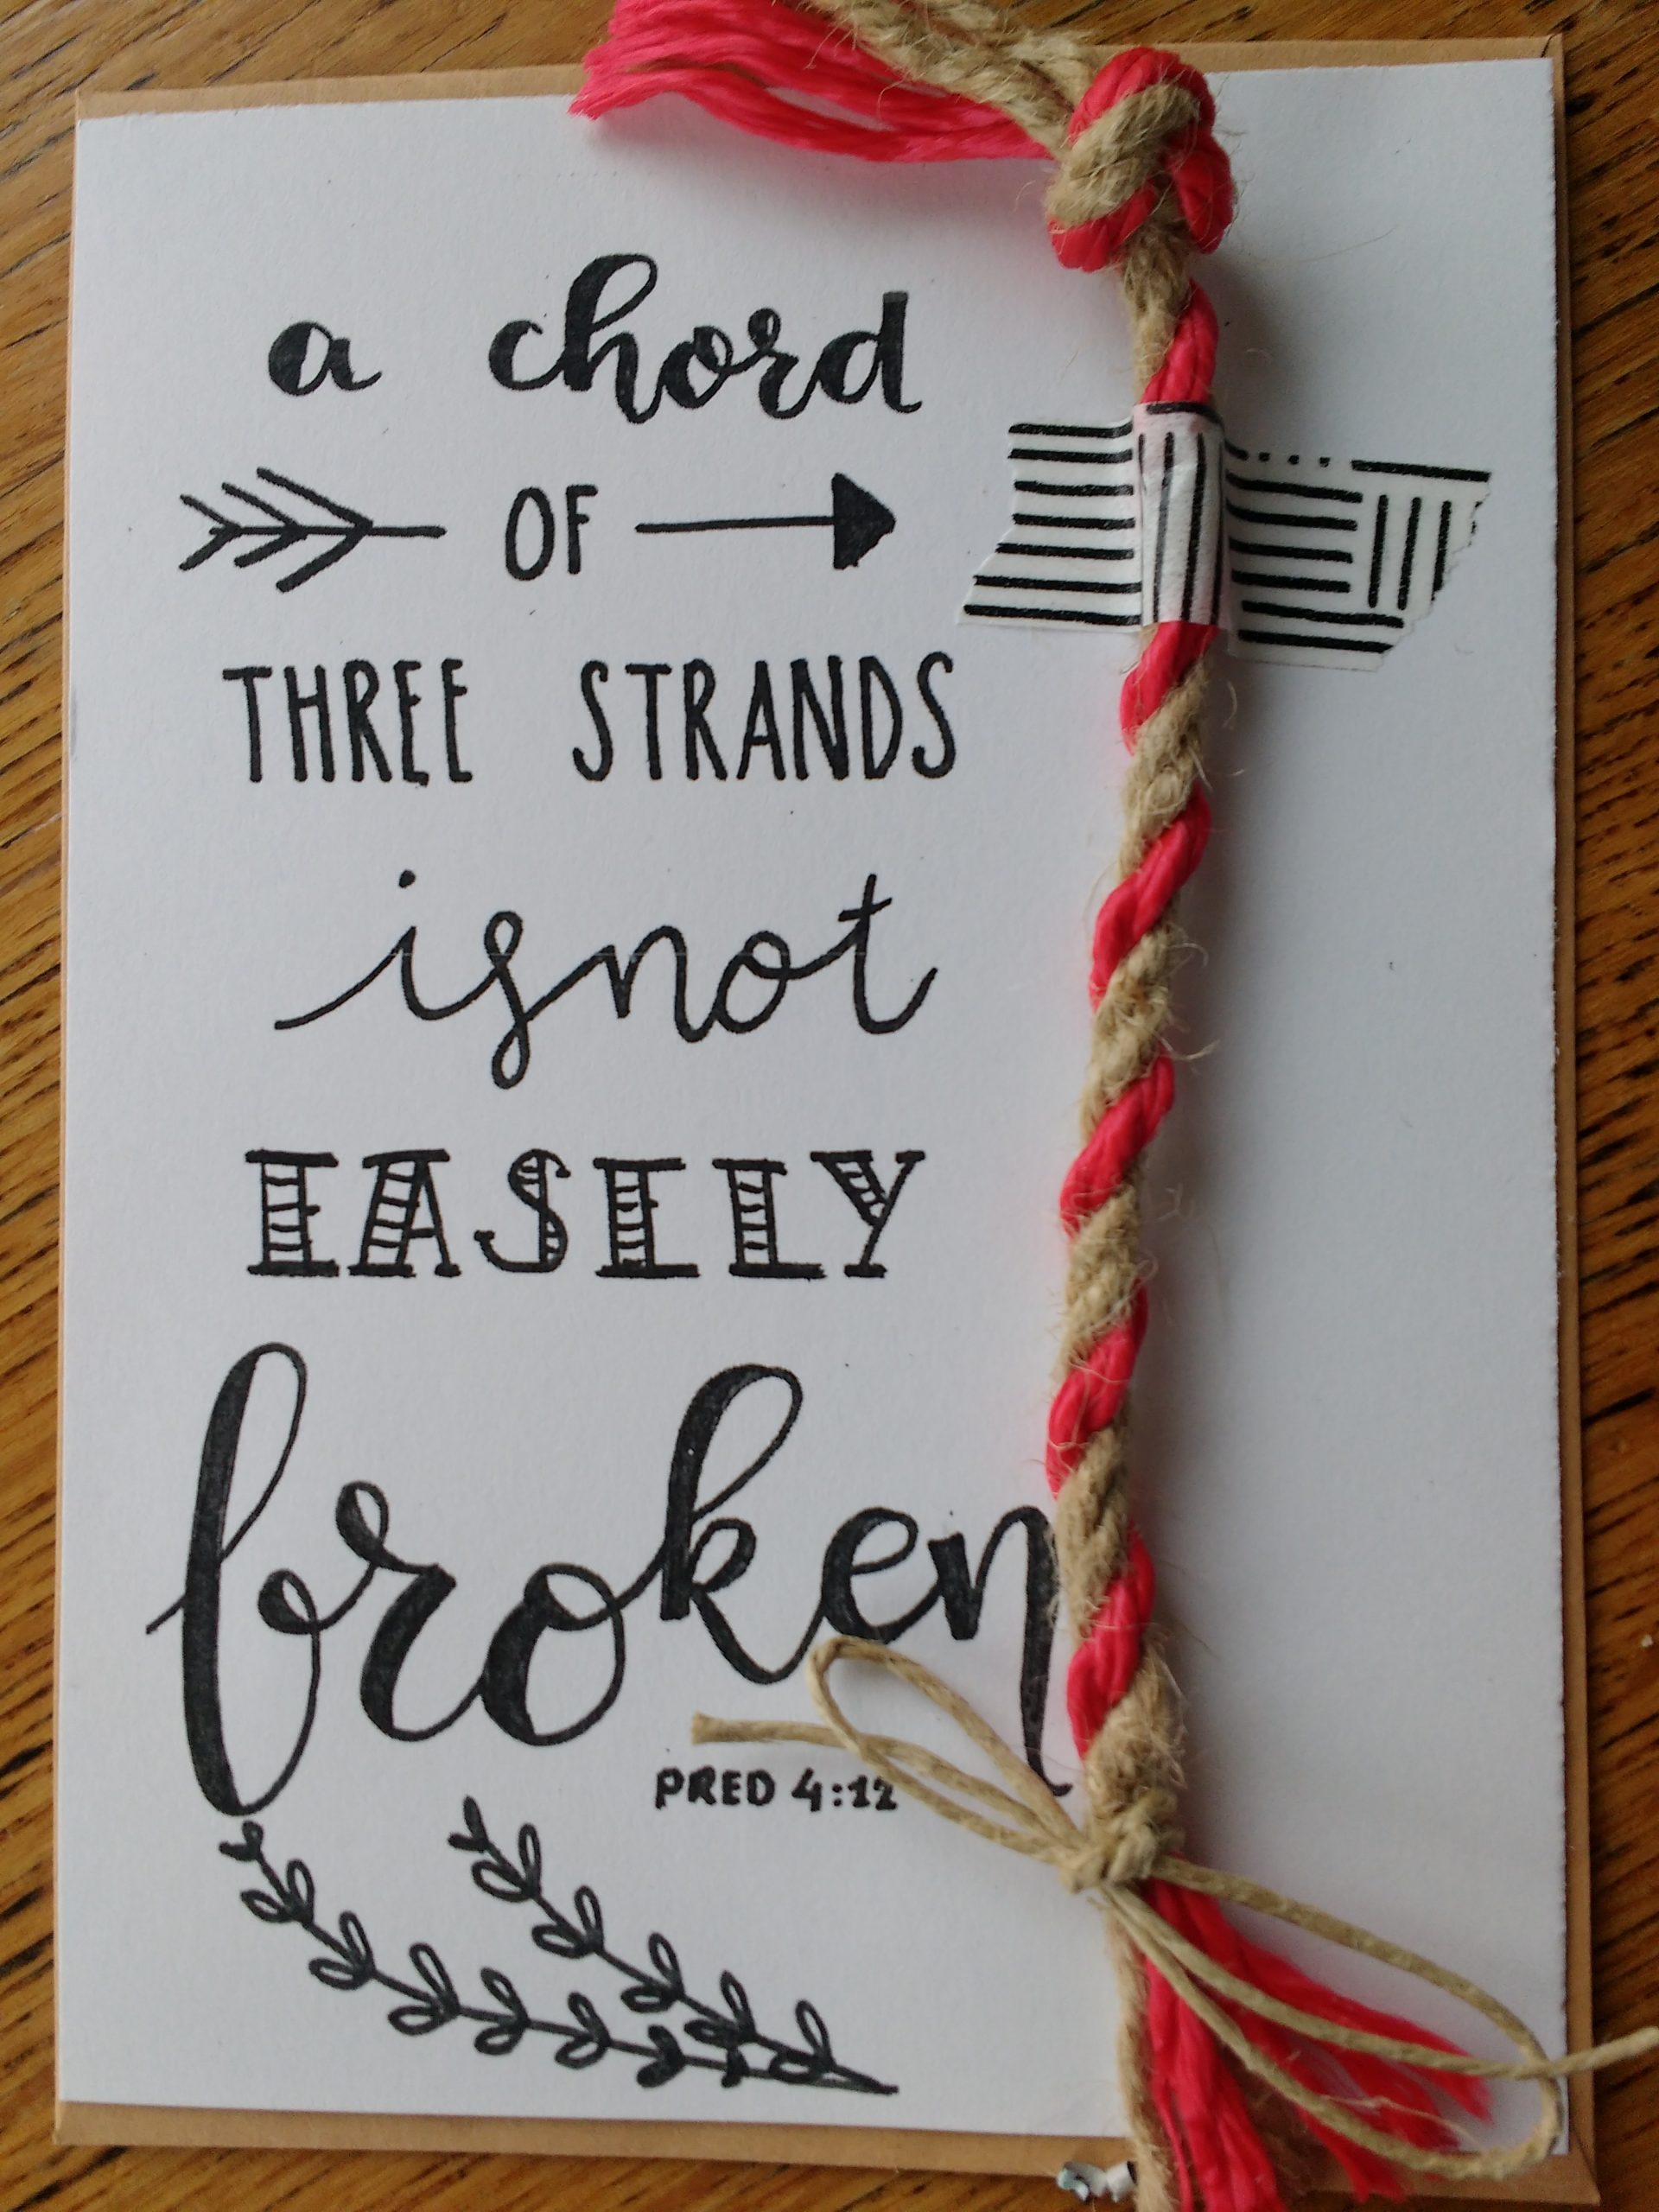 a chord
OF
THREE STRANDS
is not
EASELY
broken
PRED 4:12